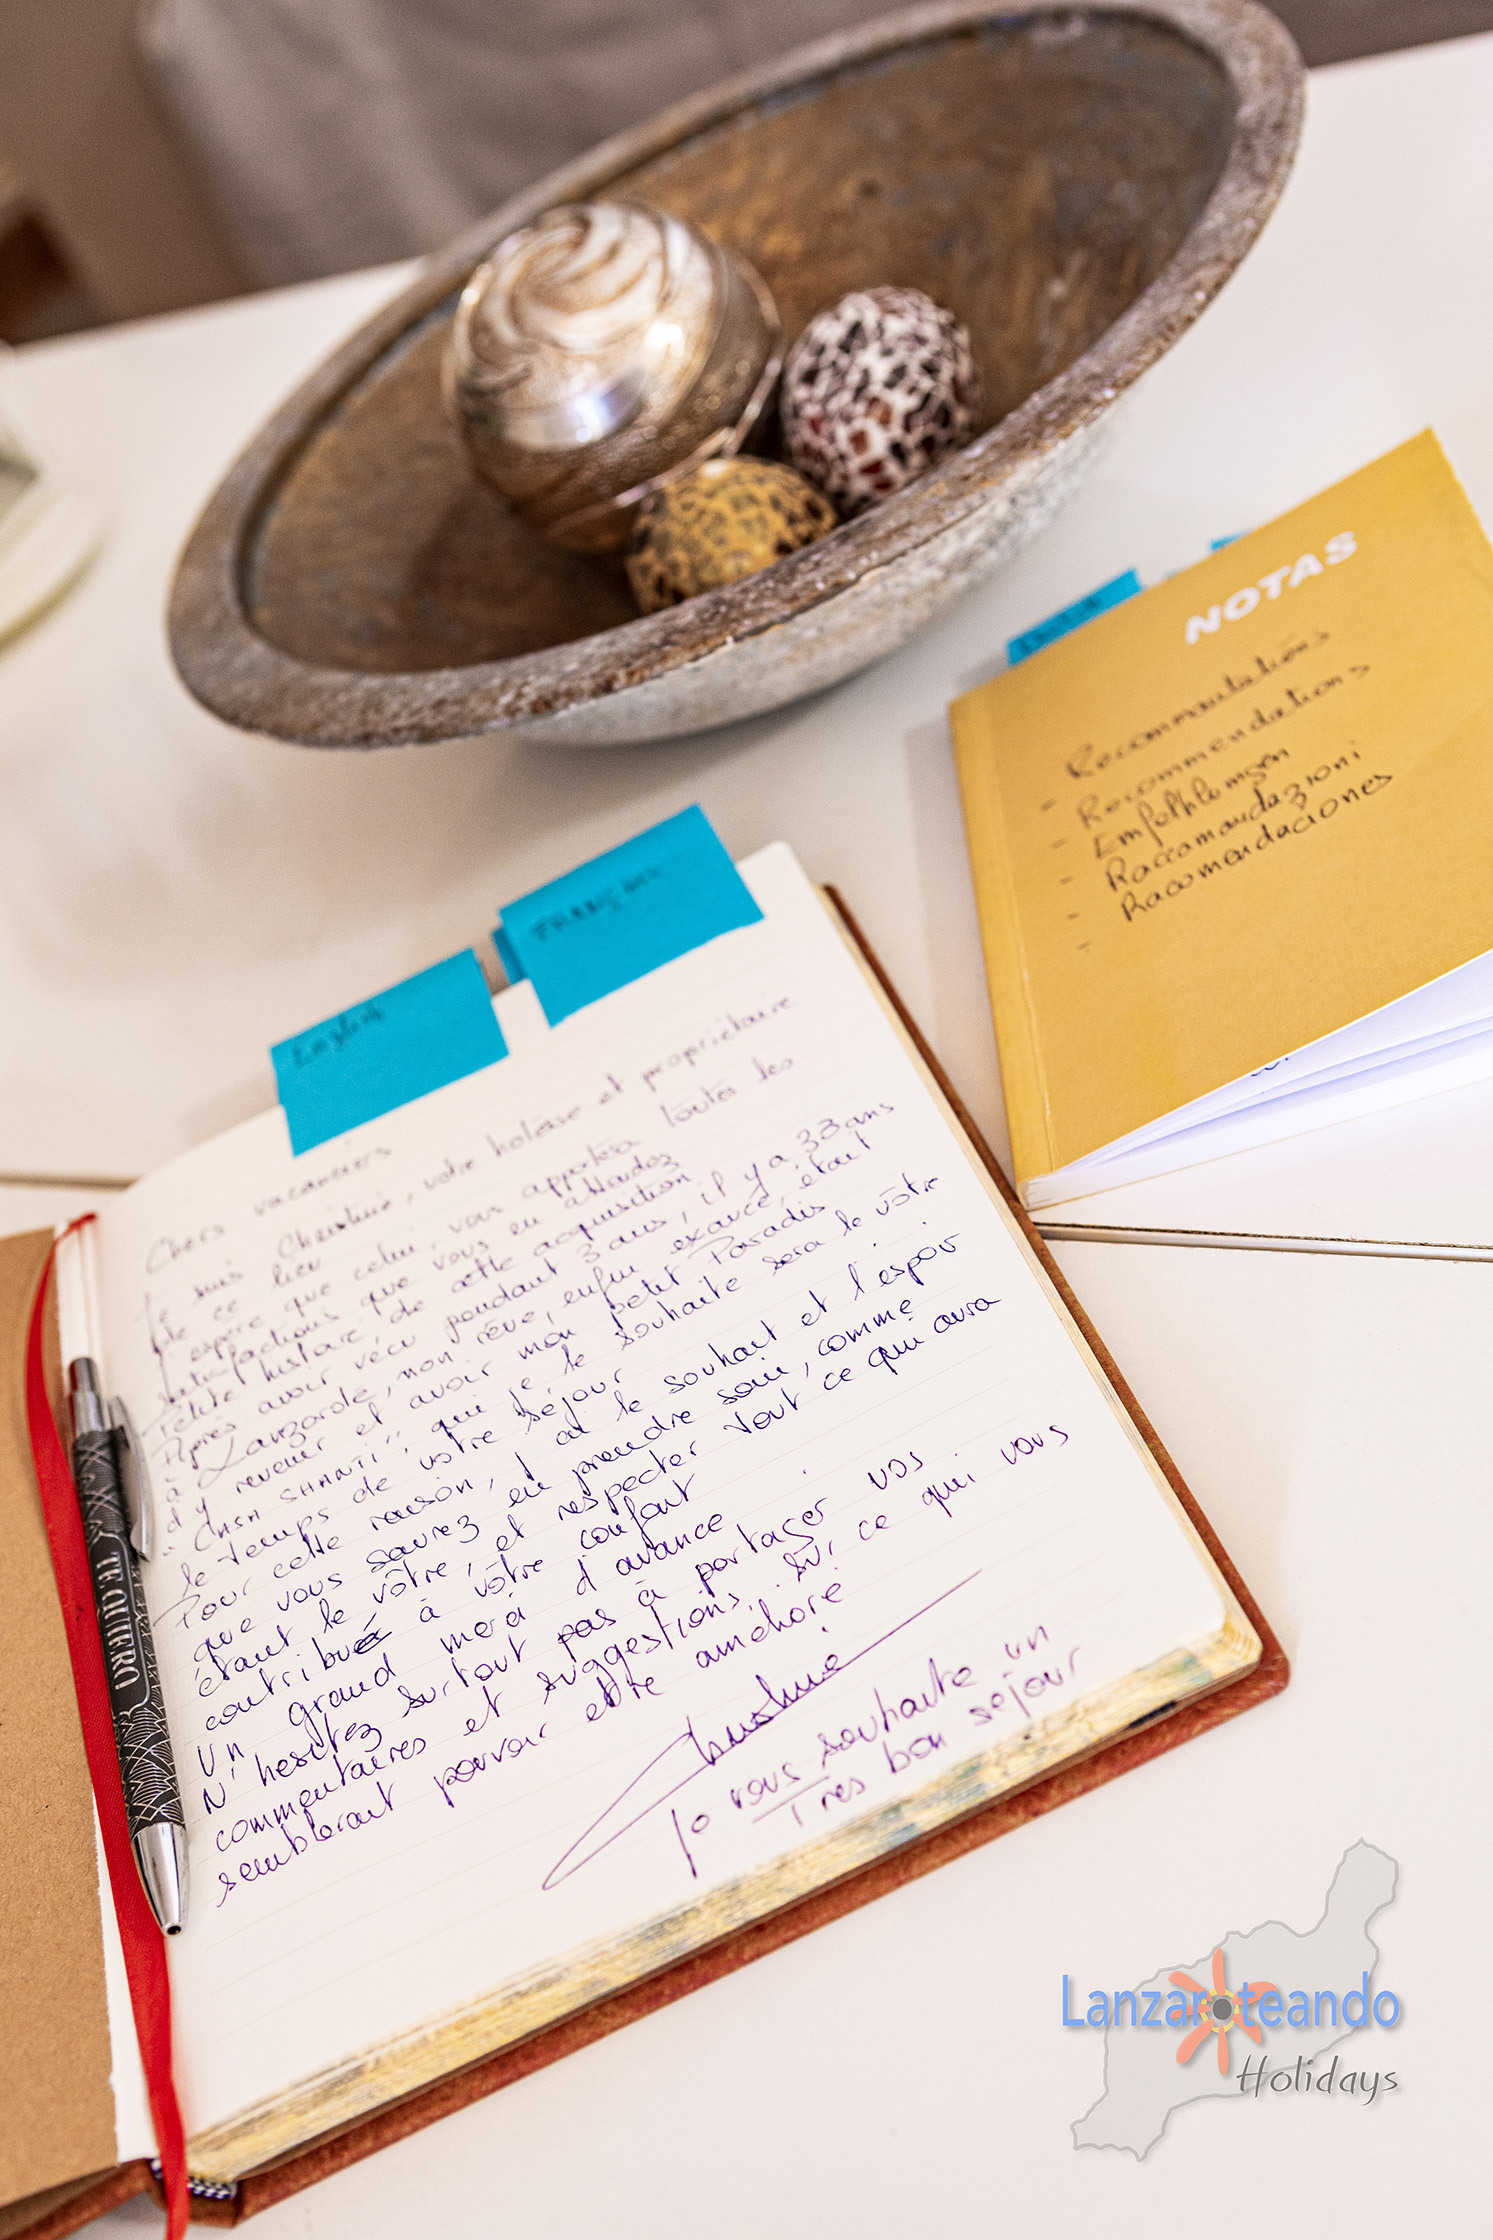 NOTAS
Recommandations
- Recommendations
- Empfehlungen
- Raccomandazioni
- Recomendaciones
English
FRANÇAIS
Chers vacanciers
Je suis Christine, votre hôtesse et propriétaire
de ce lieu
J'espère que celui, vous apportera toutes les
satisfactions que vous en attendez
Petite histoire de cette acquisition
Après avoir vécu pendant 3 ans, il y a 33 ans
à Lanzarote, mon rêve, enfin exaucé, étant
d'y revenir et avoir mon petit Paradis
"CASA SHANTI", qui je le souhaite sera le vôtre
le temps de votre séjour
Pour cette raison, j'ai le souhait et l'espoir
que vous saurez en prendre soin, comme
étant le vôtre, et respecter tout ce qui aura
contribué à vôtre confort
Un grand merci d'avance.
N'hesitez surtout pas à partager vos
commentaires et suggestions, sur ce qui vous
semblerait pouvoir etre amélioré
Christine
Je vous souhaite un
Tres bon sejour
TE QUIERO
Lanzaroteando
Holidays